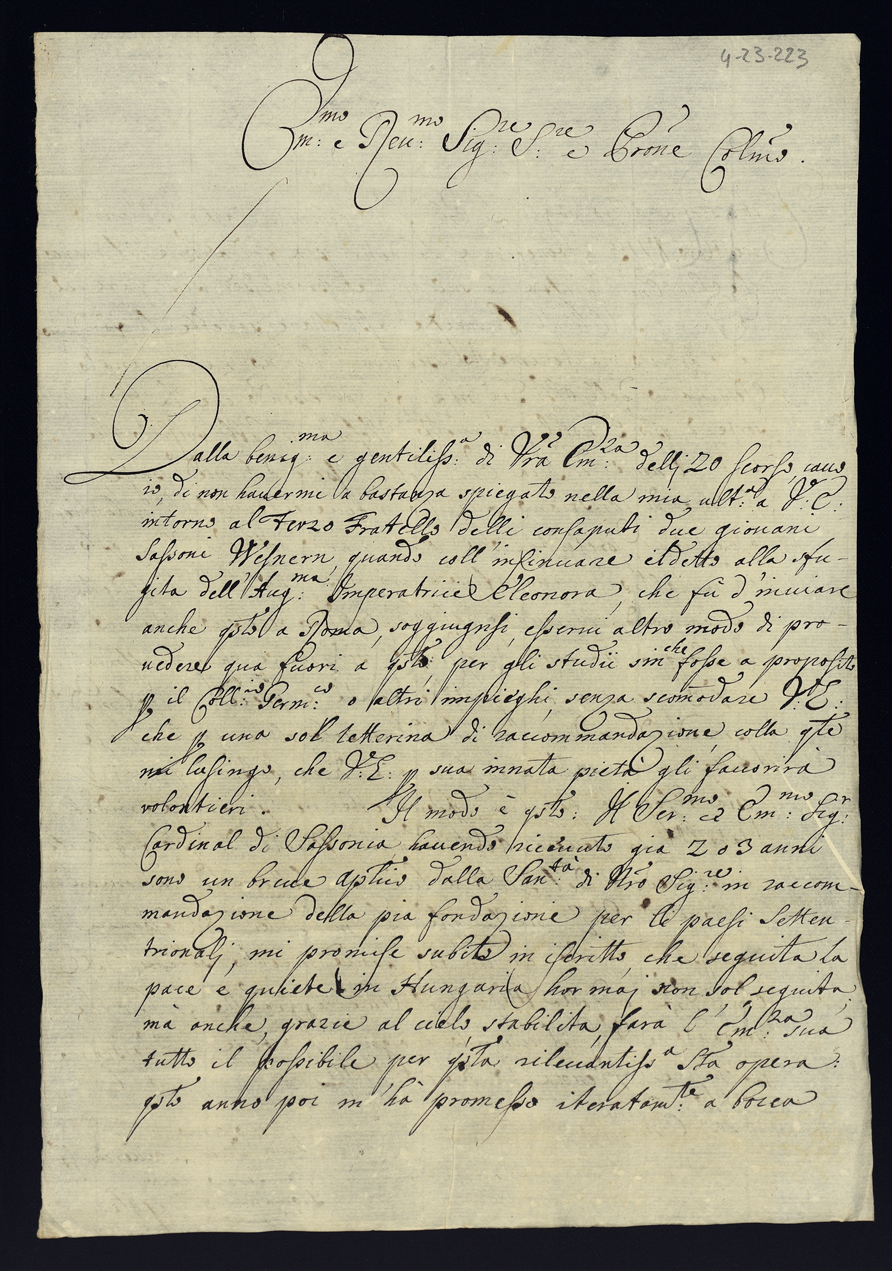 4-23-223
Em:mo e Reu:mo Sig:re S:re e Prone Colmo.
Dalla benig:ma e gentiliss:a di Vra Em:za dellj 20 scorso, cauo
io, di non hauermi a bastanza spiegato nella mia ult:a à V:E:
intorno al Terzo Fratello delli consaputi due giouani
Sassoni Wesnern, quando coll' insinuare il detto alla sfu-
gita dell' Aug:ma Imperatrice Eleonora, che fù d'inuiare
anche qsto a Roma, soggiugnsi, esserui altro modo di pro-
uedere qua fuori a qsto, per gli studii sin che fosse a proposito
p il Coll:io Germ:co o altri impieghi, senza scomodare V:E:
che p una sol letterina di raccommandazione, colla qle
mi lusingo, che V:E: p sua innata pietà gli fauorirà
volontieri. Il modo è qsto: Il Ser:mo ed Em:mo Sig:r
Cardinal di Sassonia hauendo riceuuto già 2 o 3 anni
sono un breue aplico dalla San:tà di Nro Sig:re in raccom-
mandazione della pia fondazione per le paesi Setten-
trionalj, mi promise subito in iscritto che seguita la
pace e quiete in Hungaria hor maj non sol seguita,
mà anche, grazie al cielo stabilita, farà l' Em:za sua
tutto il possibile per qsta rileuantiss:a Sta opera:
qsto anno poi m'hà promesso iteratam:te a bocca